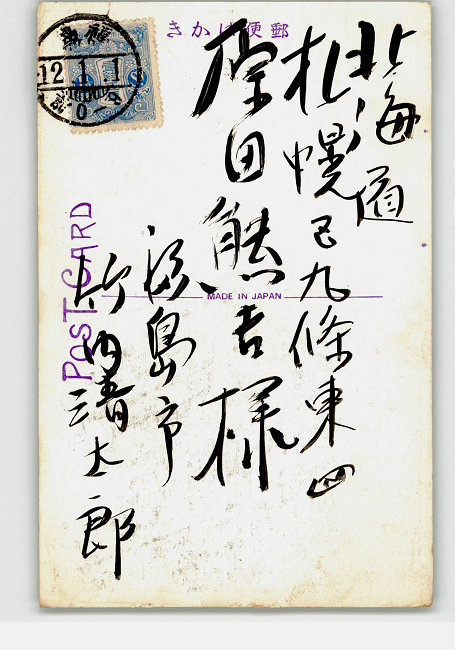 郵便はかき
北海道
札幌
九條東四
原田熊吉様
MADE IN JAPAN
島市
竹内清太郎
POST CARD
12 1 1